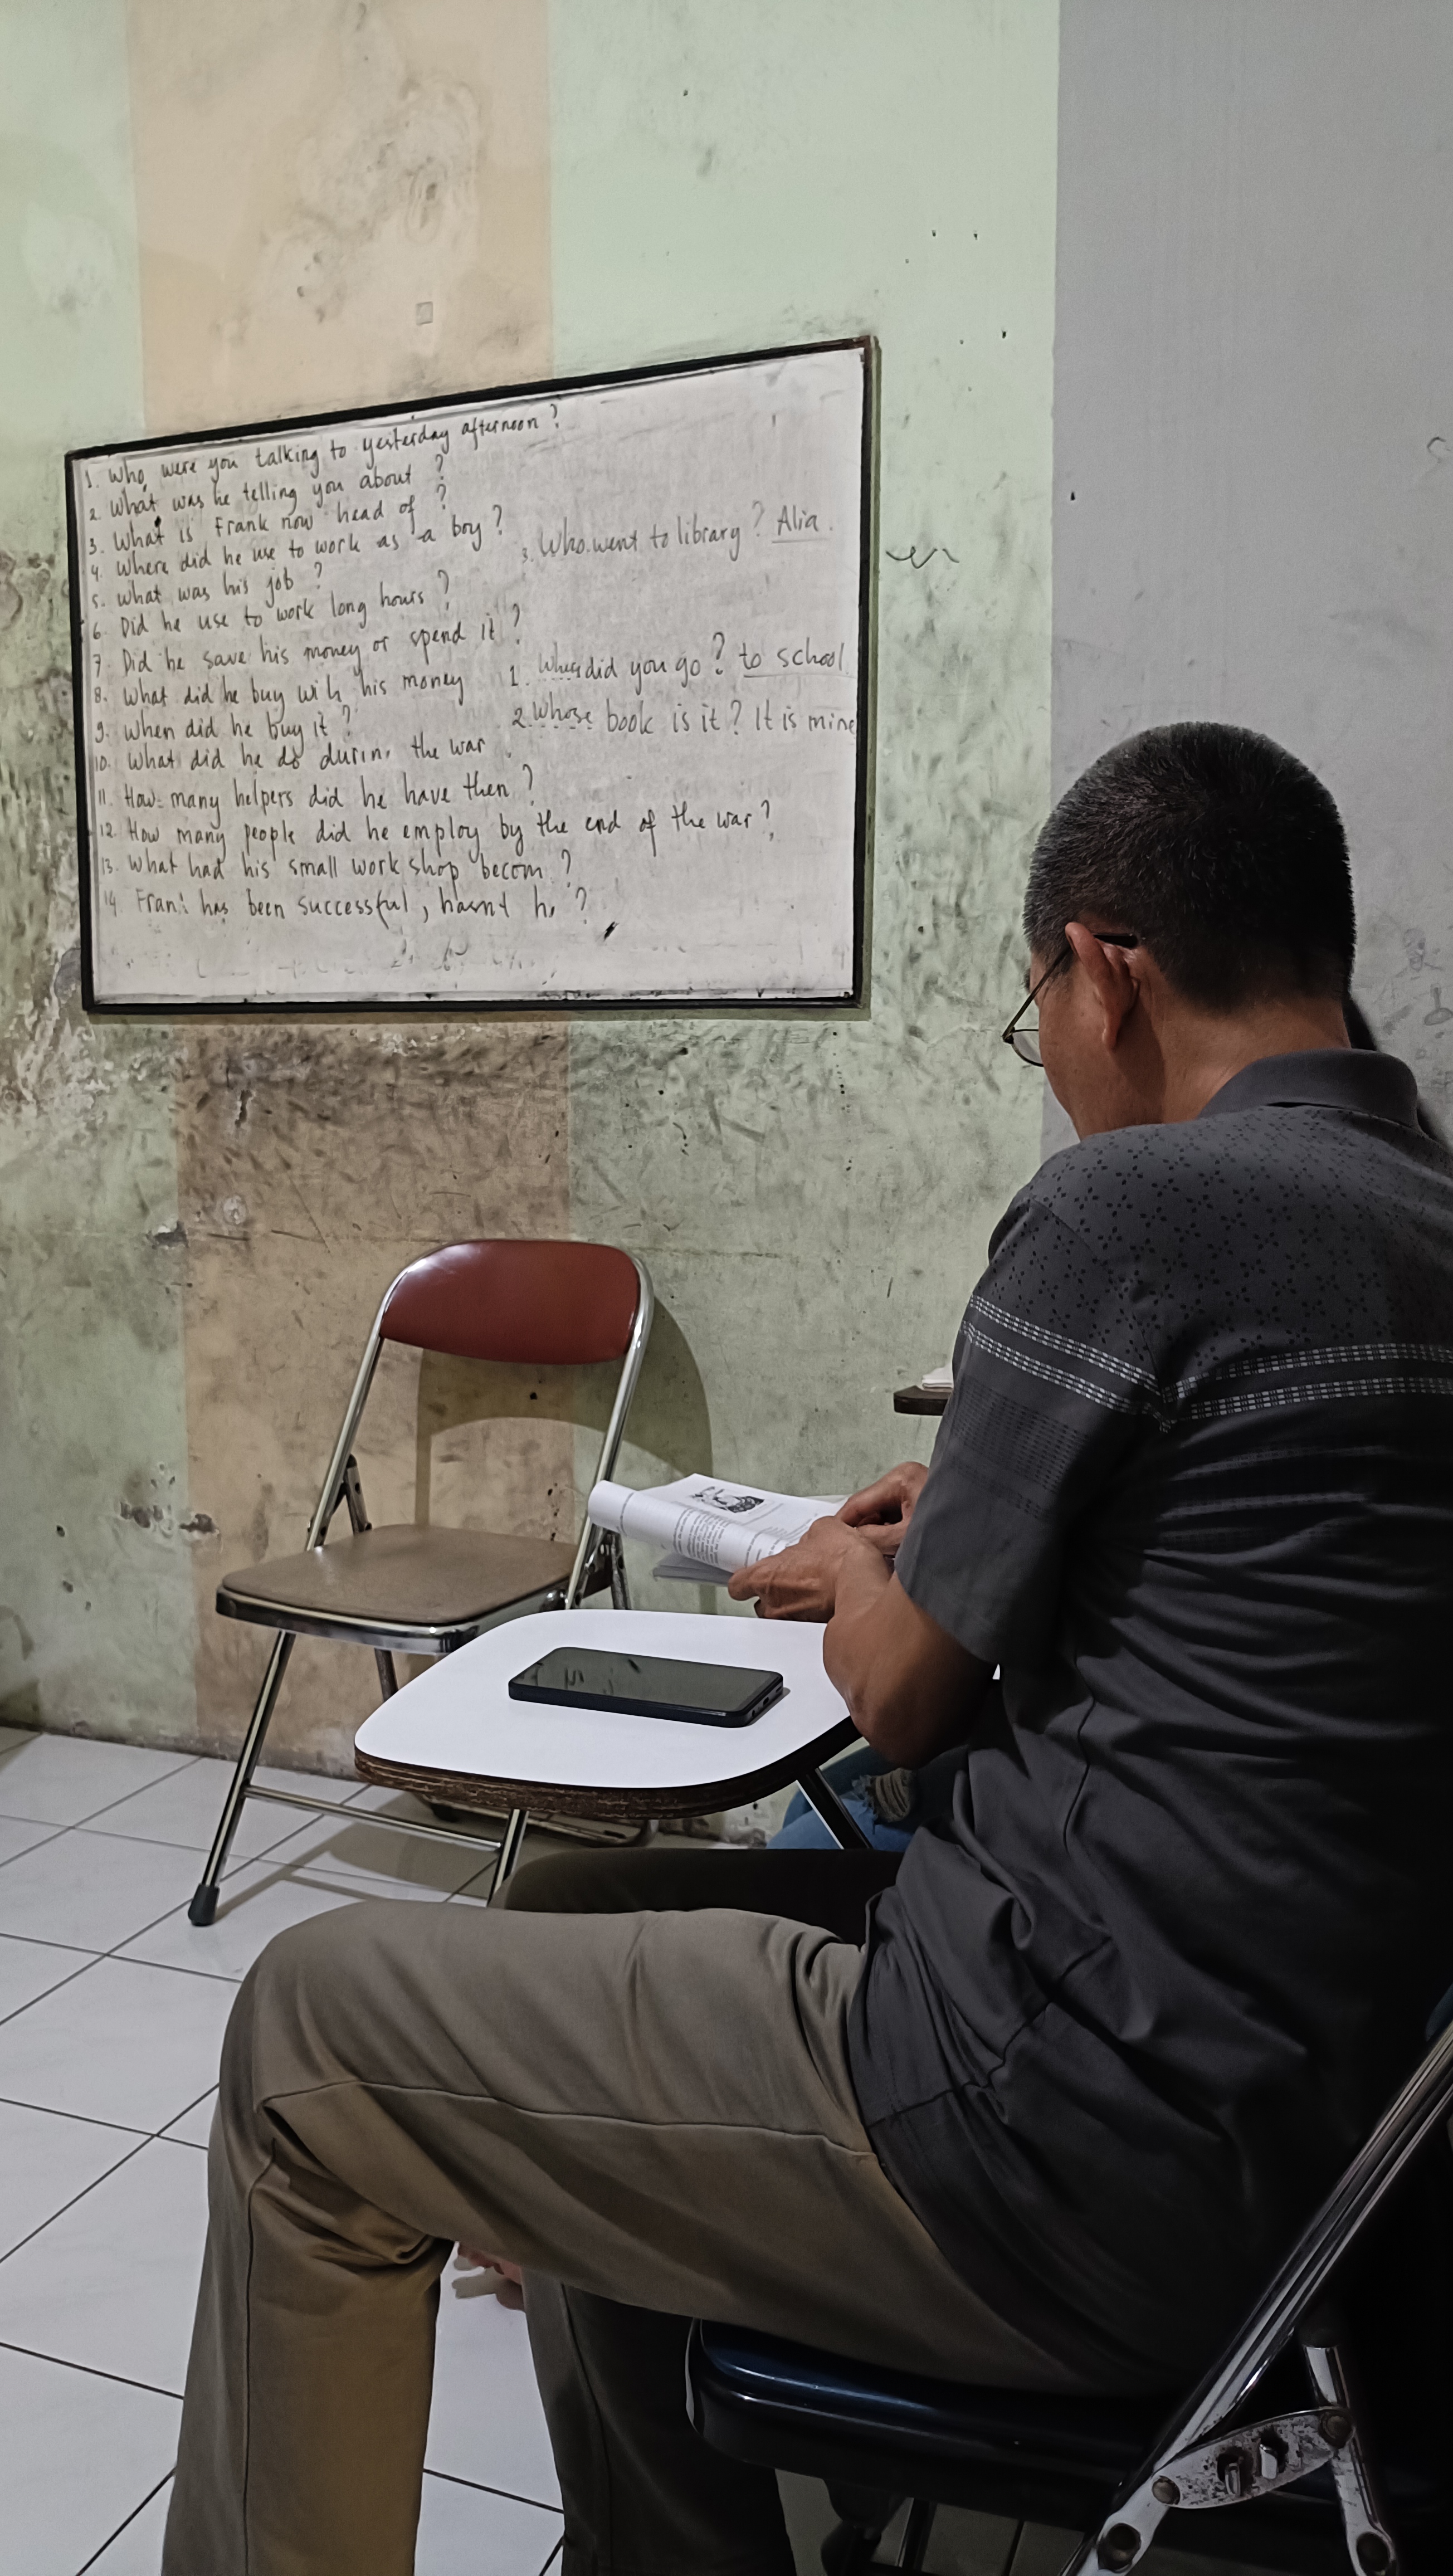 1. Who were you talking to yesterday afternoon ?
2. What was he telling you about ?
3. What is Frank now head of ?
4. Where did he use to work as a boy ?
5. What was his job ?
6. Did he use to work long hours ?
7. Did he save his money or spend it ?
8. What did he buy with his money
9. When did he buy it ?
10. What did he do durin the war
11. How many helpers did he have then ?
12. How many people did he employ by the end of the war ?
13. What had his small work shop becom ?
14. Fran has been successful, hasnt h ?
3. Who went to library ? Alia.
1. Where did you go ? to school
2. Whose book is it ? It is mine